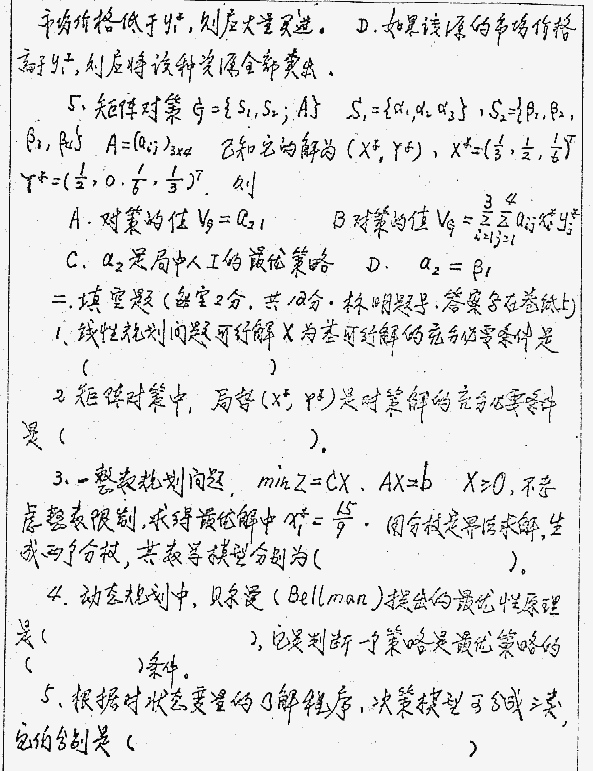 市场价格低于y₂*，则应大量买进。 D.如果该资源的市场价格
高于y₂*，则应将该种资源全部卖出.
5、矩阵对策 G={S₁,S₂;A} S₁={α₁,α₂ α₃}，S₂={β₁,β₂,
β₃,β₄} A=(aᵢⱼ)₃ₓ₄ 已知它的解为(X*,Y*)，X*=(1/3,1/2,1/6)ᵀ
Y*=(1/2,0.1/6,1/3)ᵀ. 则
A.对策的值 V_G=a₂₁ B 对策的值 V_G=∑³ᵢ₌₁∑⁴ⱼ₌₁aᵢⱼxᵢ*yⱼ*
C. α₂是局中人I的最优策略 D. α₂=β₁
二.填空题(每空2分.共12分.标明题号.答案写在卷纸上)
1、线性规划问题可行解X为基可行解的充分必要条件是
( )
2 矩阵对策中，局势(X*,Y*)是对策解的充分必要条件
是( )。
3.一整数规划问题，min Z=CX、AX=b X≥0，不考
虑整数限制，求得最优解中x₁*=15/9.用分枝定界法求解，生
成两个分枝，其数学模型分别为( )。
4.动态规划中，贝尔曼(Bellman)提出的最优性原理
是( )，它是判断一个策略是最优策略的
( )条件。
5、根据对状态变量的了解程序，决策模型可分成三类，
它们分别是( )